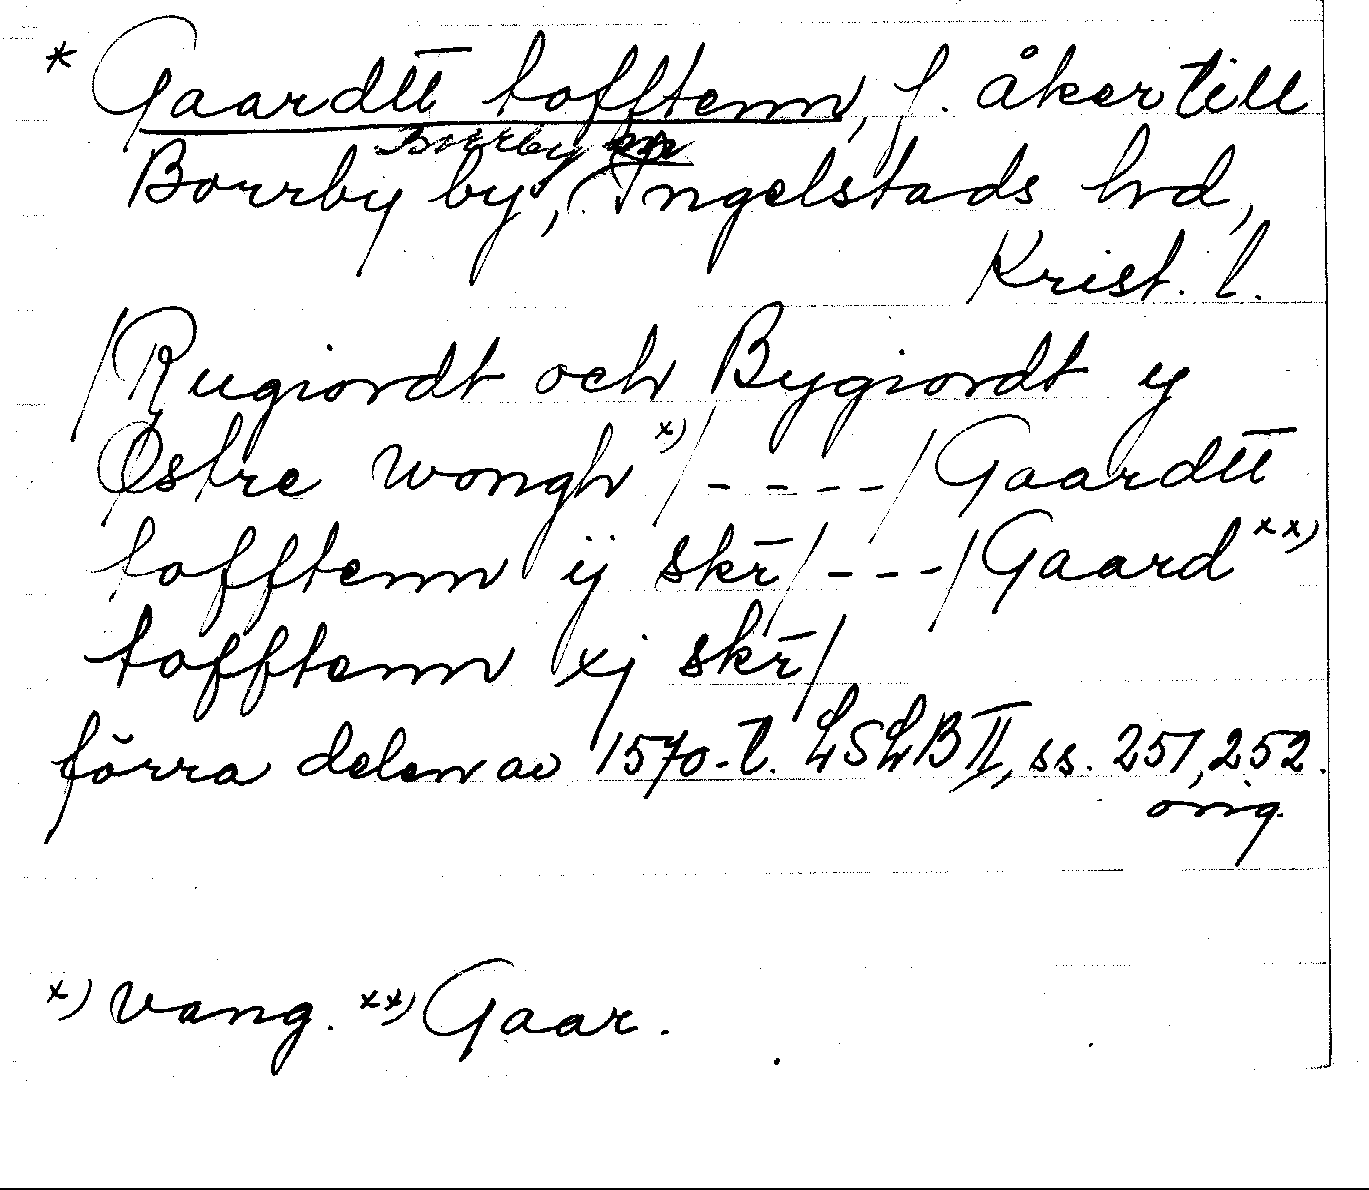 * Gaardtt tofftenn, f. åker till
Borrby sn
Borrby by, Ingelstads hd,
Krist. l.
/Rugiordt och Bygiordt y
Østre wongh x)/ - - - - /Gaardtt
tofftenn ij skr̄/ - - - /Gaard xx)
tofftenn xj skr̄/
förra delen av 1570-t. LSLB II, ss. 251, 252.
orig.
x) vang. xx) Gaar.